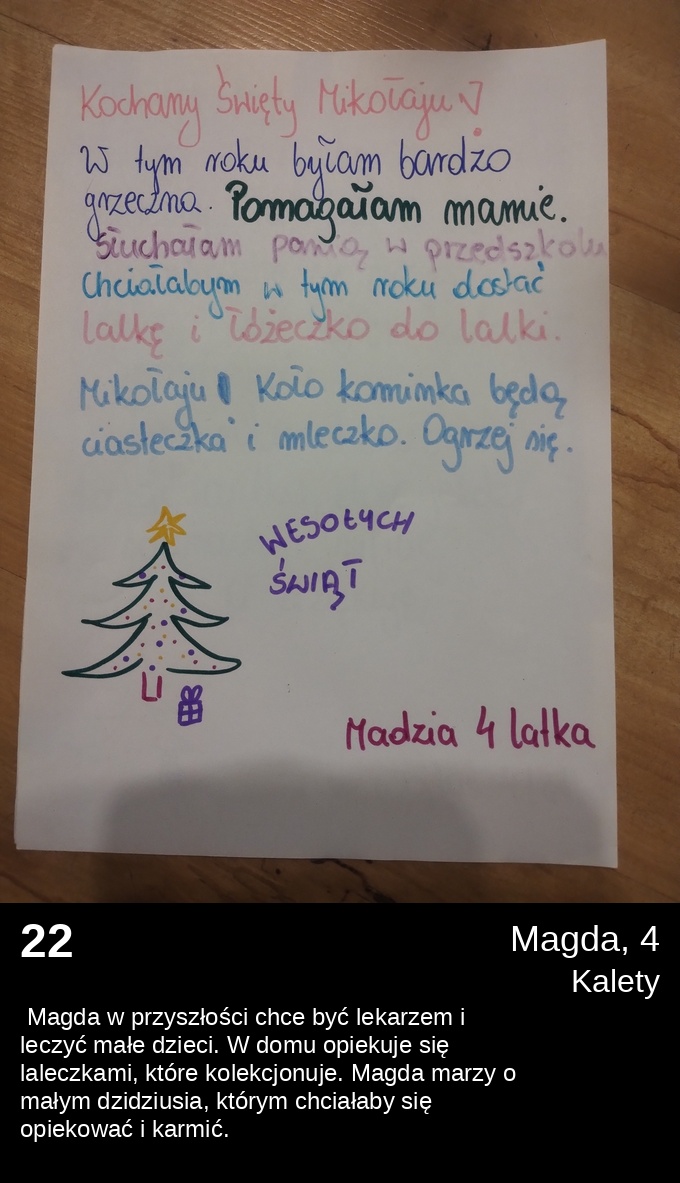 Kochany Święty Mikołaju!
W tym roku byłam bardzo
grzeczna. Pomagałam mamie.
Słuchałam panią w przedszkolu
Chciałabym w tym roku dostać
lalkę i łóżeczko do lalki.
Mikołaju! Koło kominka będą
ciasteczka i mleczko. Ogrzej się.
WESOŁYCH
ŚWIĄT
Madzia 4 latka
22
Magda, 4
Kalety
Magda w przyszłości chce być lekarzem i
leczyć małe dzieci. W domu opiekuje się
laleczkami, które kolekcjonuje. Magda marzy o
małym dzidziusia, którym chciałaby się
opiekować i karmić.